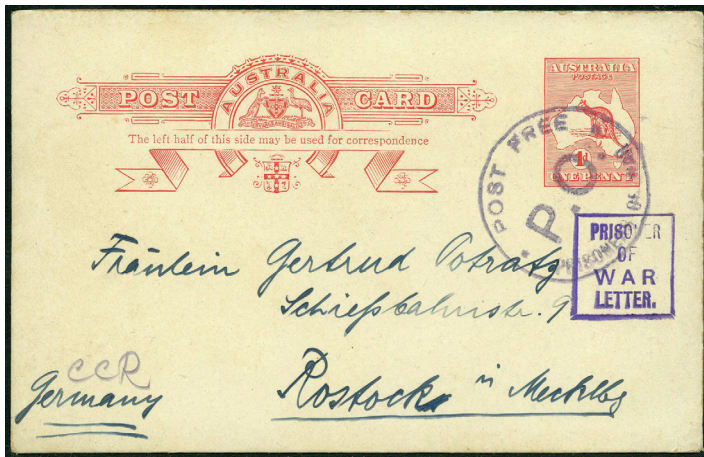 AUSTRALIA
POST CARD
The left half of this side may be used for correspondence
AUSTRALIA
POSTAGE
1d
ONE PENNY
POST FREE
P.O.
PRISONER
OF
WAR
LETTER.
Fräulein Gertrud Potratz
Schießbahnstr. 9
CCR
Germany
Rostock i Mecklbg